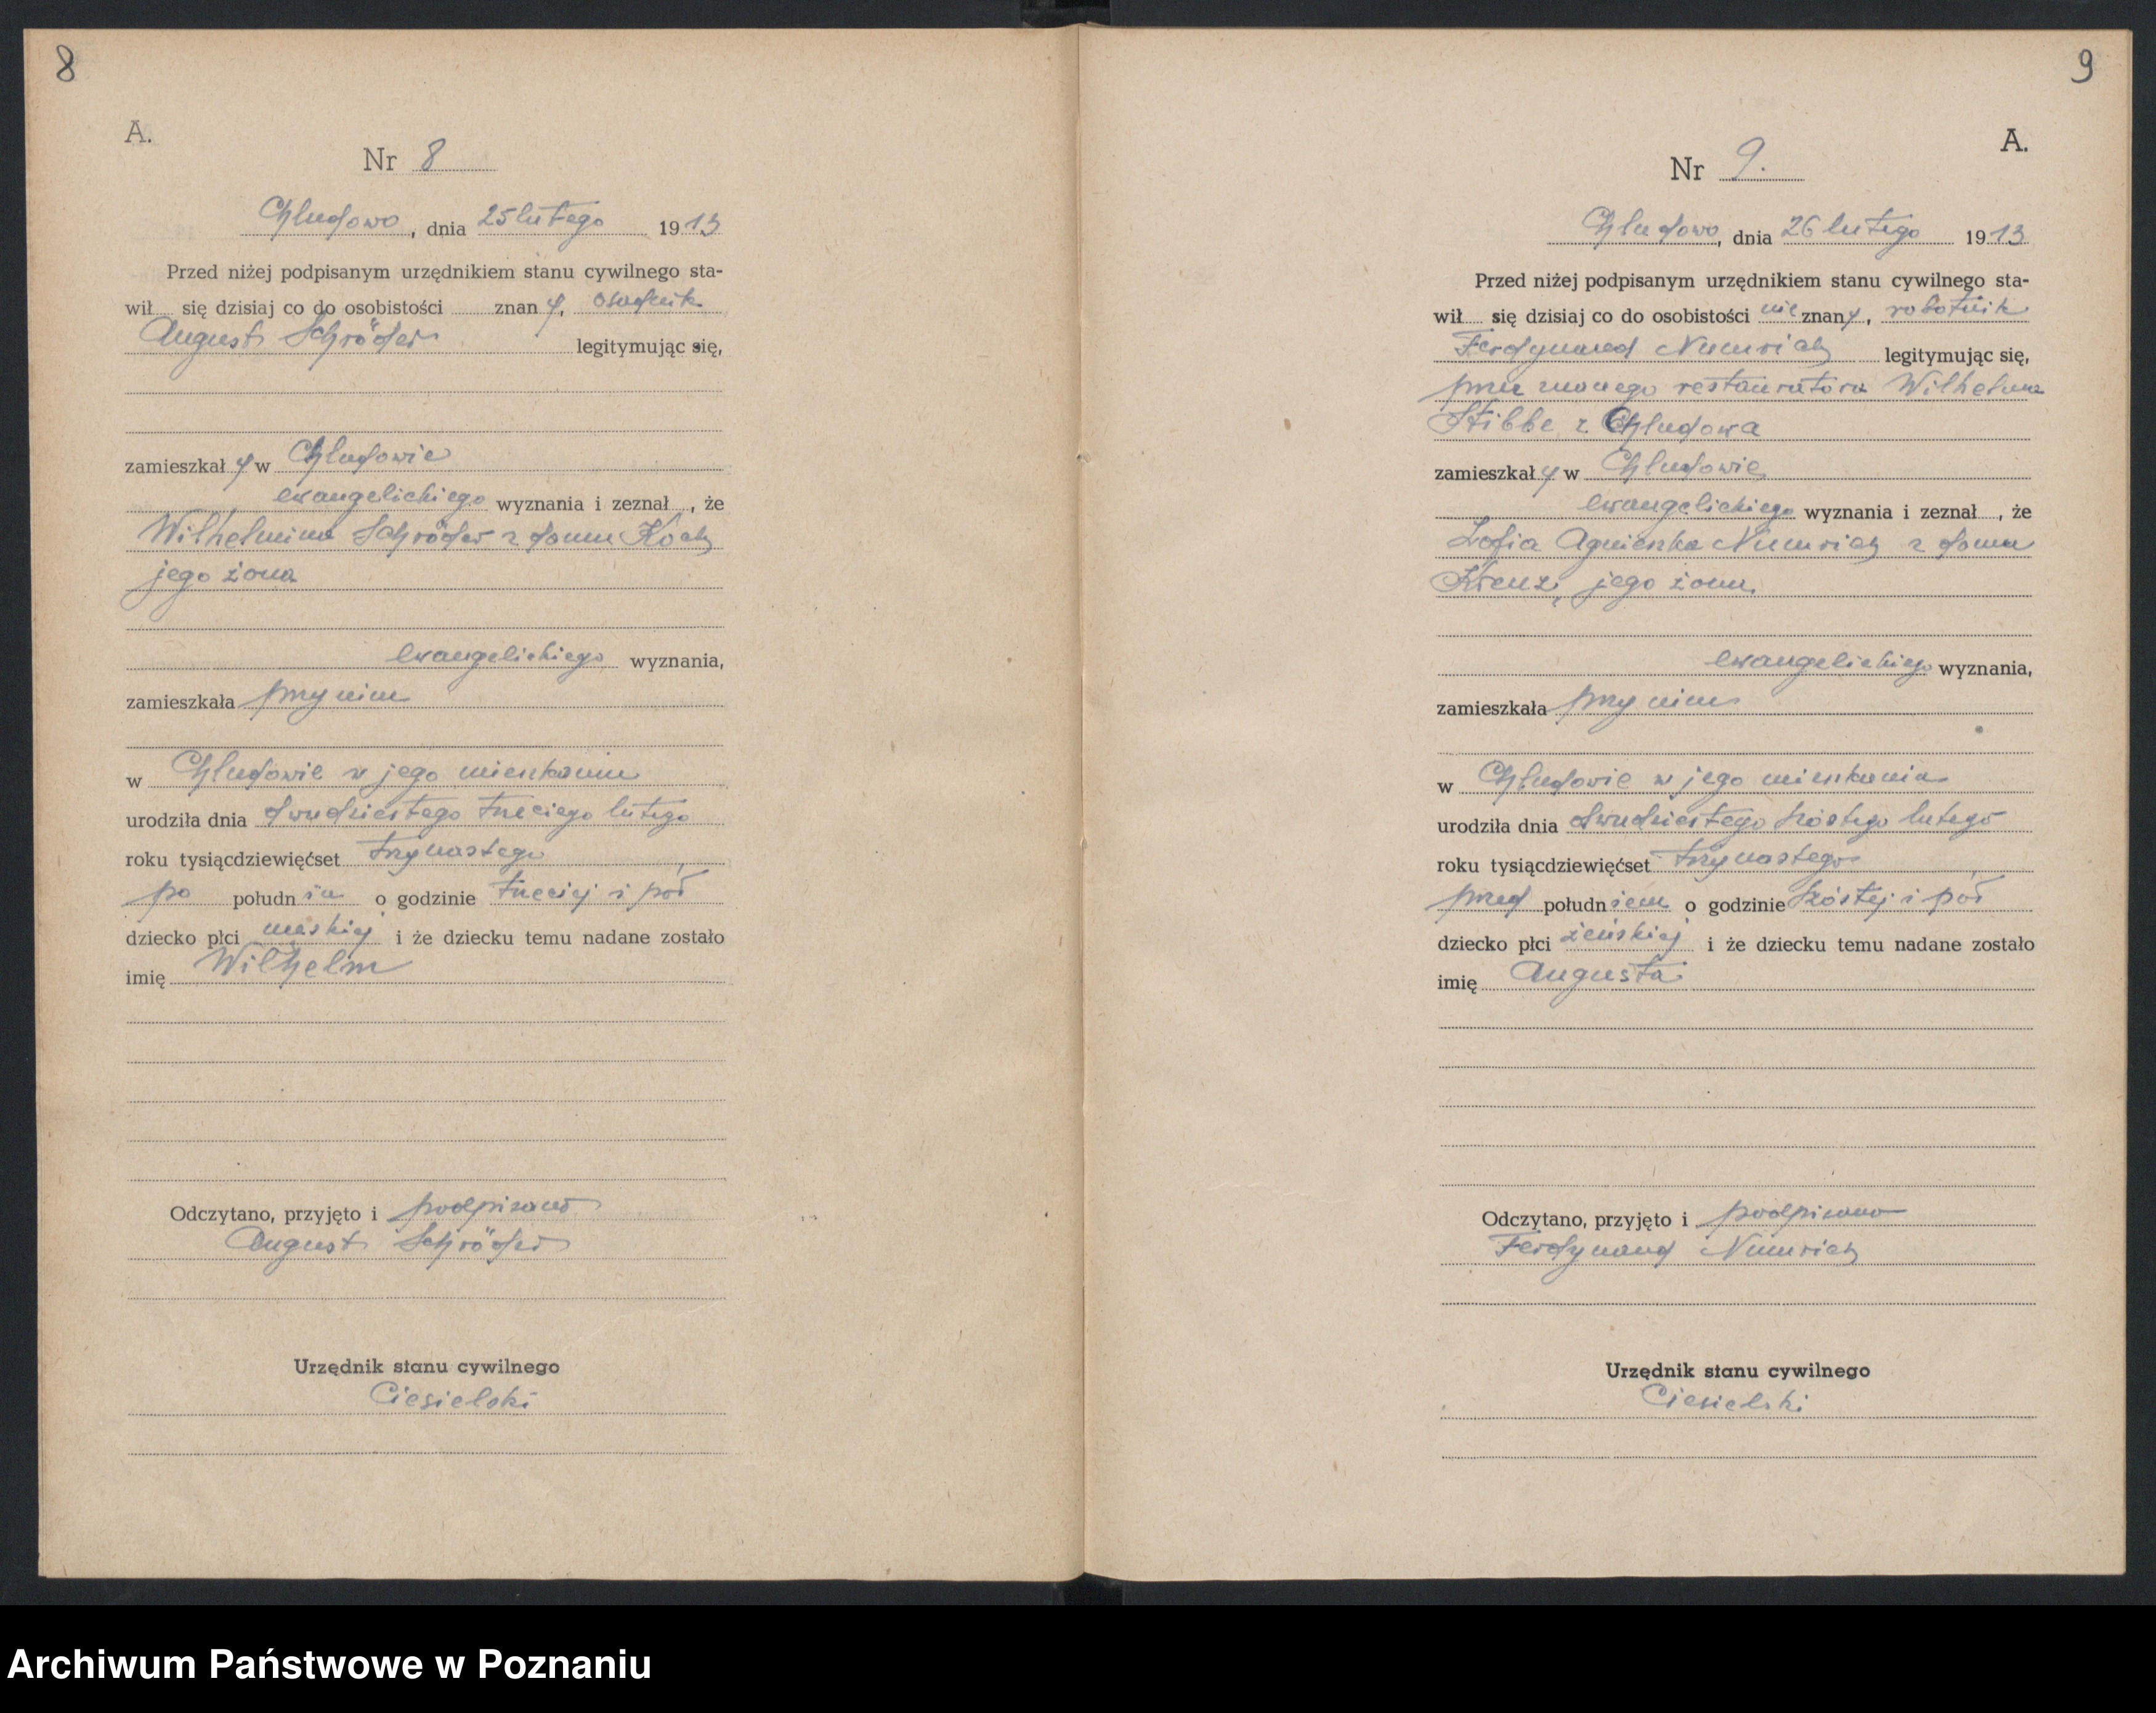 8
A.
Nr 8
Chludowo, dnia 25 lutego 1913
Przed niżej podpisanym urzędnikiem stanu cywilnego sta-
wił się dzisiaj co do osobistości znany, osadnik
August Schröder legitymując się,
zamieszkały w Chludowie
ewangelickiego wyznania i zeznał, że
Wilhelmina Schröder z domu Koch
jego żona
ewangelickiego wyznania,
zamieszkała przy nim
w Chludowie w jego mieszkaniu
urodziła dnia dwudziestego trzeciego lutego
roku tysiącdziewięćset trzynastego
po południu o godzinie trzeciej i pół
dziecko płci męskiej i że dziecku temu nadane zostało
imię Wilhelm
Odczytano, przyjęto i podpisano
August Schröder
Urzędnik stanu cywilnego
Ciesielski
9
A.
Nr 9.
Chludowo, dnia 26 lutego 1913
Przed niżej podpisanym urzędnikiem stanu cywilnego sta-
wił się dzisiaj co do osobistości nieznany, robotnik
Ferdynand Numrich legitymując się,
przez znanego restauratora Wilhelma
Stibbe z Chludowa
zamieszkały w Chludowie
ewangelickiego wyznania i zeznał, że
Zofia Agnieszka Numrich z domu
Krenz, jego żona
ewangelickiego wyznania,
zamieszkała przy nim
w Chludowie w jego mieszkaniu
urodziła dnia dwudziestego szóstego lutego
roku tysiącdziewięćset trzynastego
przed południem o godzinie szóstej i pół
dziecko płci żeńskiej i że dziecku temu nadane zostało
imię Augusta
Odczytano, przyjęto i podpisano
Ferdynand Numrich
Urzędnik stanu cywilnego
Ciesielski
Archiwum Państwowe w Poznaniu